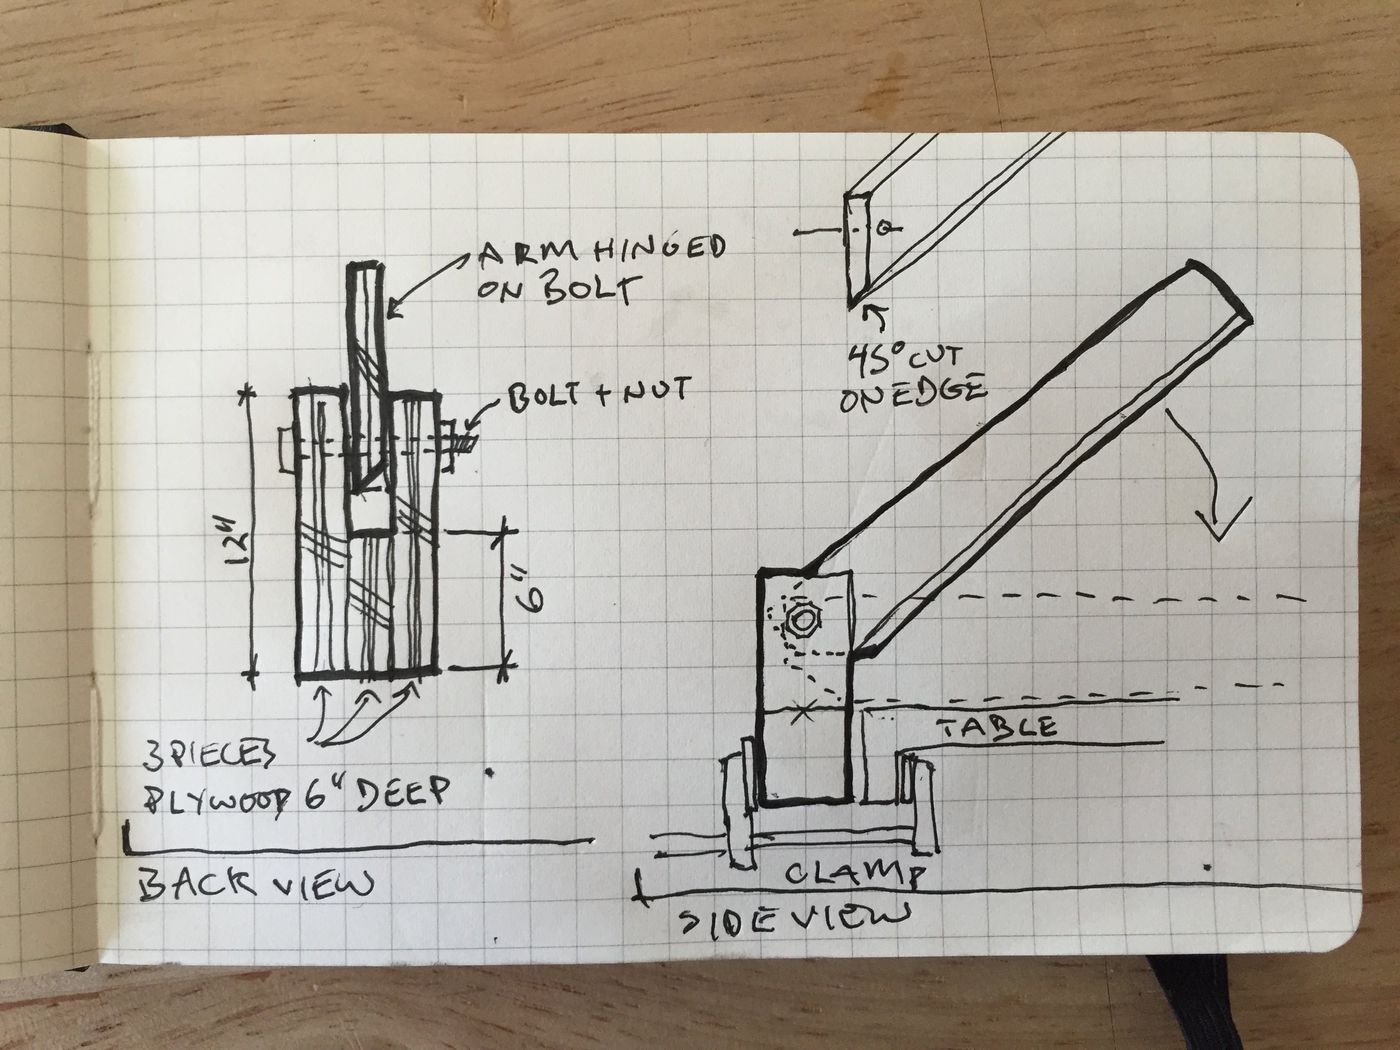 ARM HINGED
ON BOLT
BOLT + NUT
12"
6"
3 PIECES
PLYWOOD 6" DEEP
BACK VIEW
45° CUT
ON EDGE
TABLE
CLAMP
SIDE VIEW